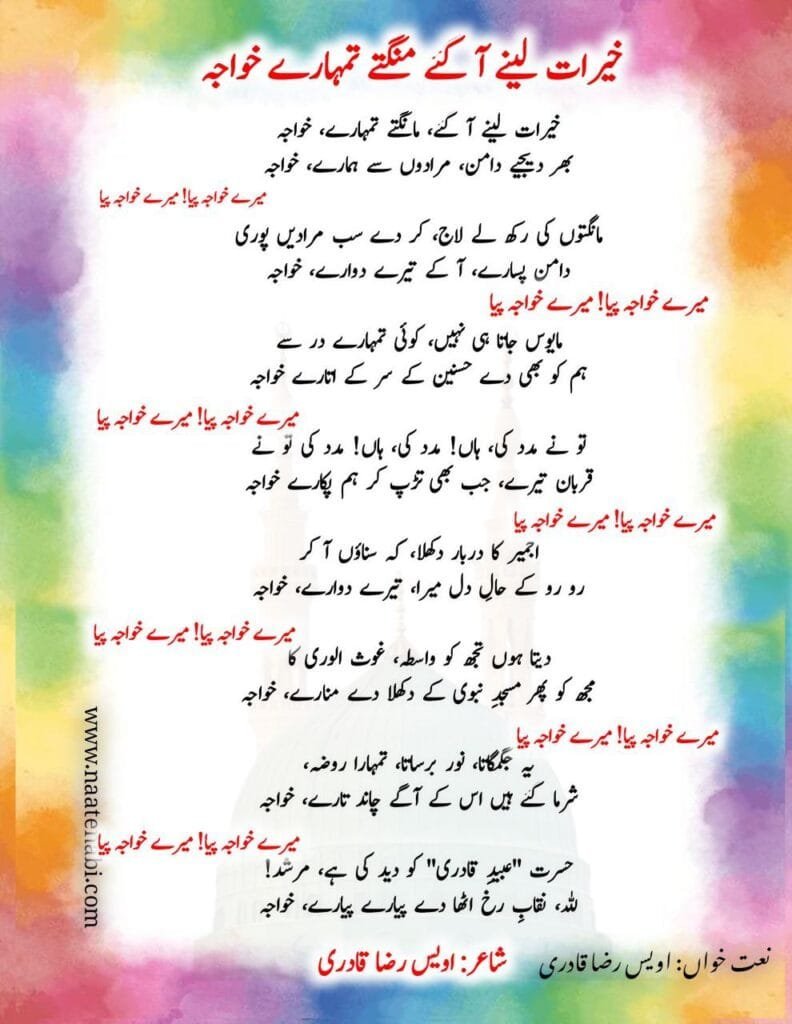 خیرات لینے آ گئے منگتے تمہارے خواجہ
خیرات لینے آ گئے، مانگتے تمہارے، خواجہ
بھر دیجیے دامن، مرادوں سے ہمارے، خواجہ
میرے خواجہ پیا! میرے خواجہ پیا
مانگتوں کی رکھ لے لاج، کر دے سب مرادیں پوری
دامن پسارے، آ کے تیرے دوارے، خواجہ
میرے خواجہ پیا! میرے خواجہ پیا
مایوس جاتا ہی نہیں، کوئی تمہارے در سے
ہم کو بھی دے حسنین کے سر کے اتارے خواجہ
میرے خواجہ پیا! میرے خواجہ پیا
تو نے مدد کی، ہاں! مدد کی، ہاں! مدد کی تُو نے
قربان تیرے، جب بھی تڑپ کر ہم پکارے خواجہ
میرے خواجہ پیا! میرے خواجہ پیا
اجمیر کا دربار دکھلا، کہ سناؤں آ کر
رو رو کے حالِ دل میرا، تیرے دوارے، خواجہ
میرے خواجہ پیا! میرے خواجہ پیا
دیتا ہوں تجھ کو واسطہ، غوث الوریٰ کا
مجھ کو پھر مسجدِ نبوی کے دکھلا دے منارے، خواجہ
میرے خواجہ پیا! میرے خواجہ پیا
یہ جگمگاتا، نور برساتا، تمہارا روضہ،
شرما گئے ہیں اس کے آگے چاند تارے، خواجہ
میرے خواجہ پیا! میرے خواجہ پیا
حسرت "عبیدِ قادری" کو دید کی ہے، مرشد!
للہ، نقابِ رخ اٹھا دے پیارے پیارے، خواجہ
نعت خواں: اویس رضا قادری
شاعر: اویس رضا قادری
www.naatenabi.com